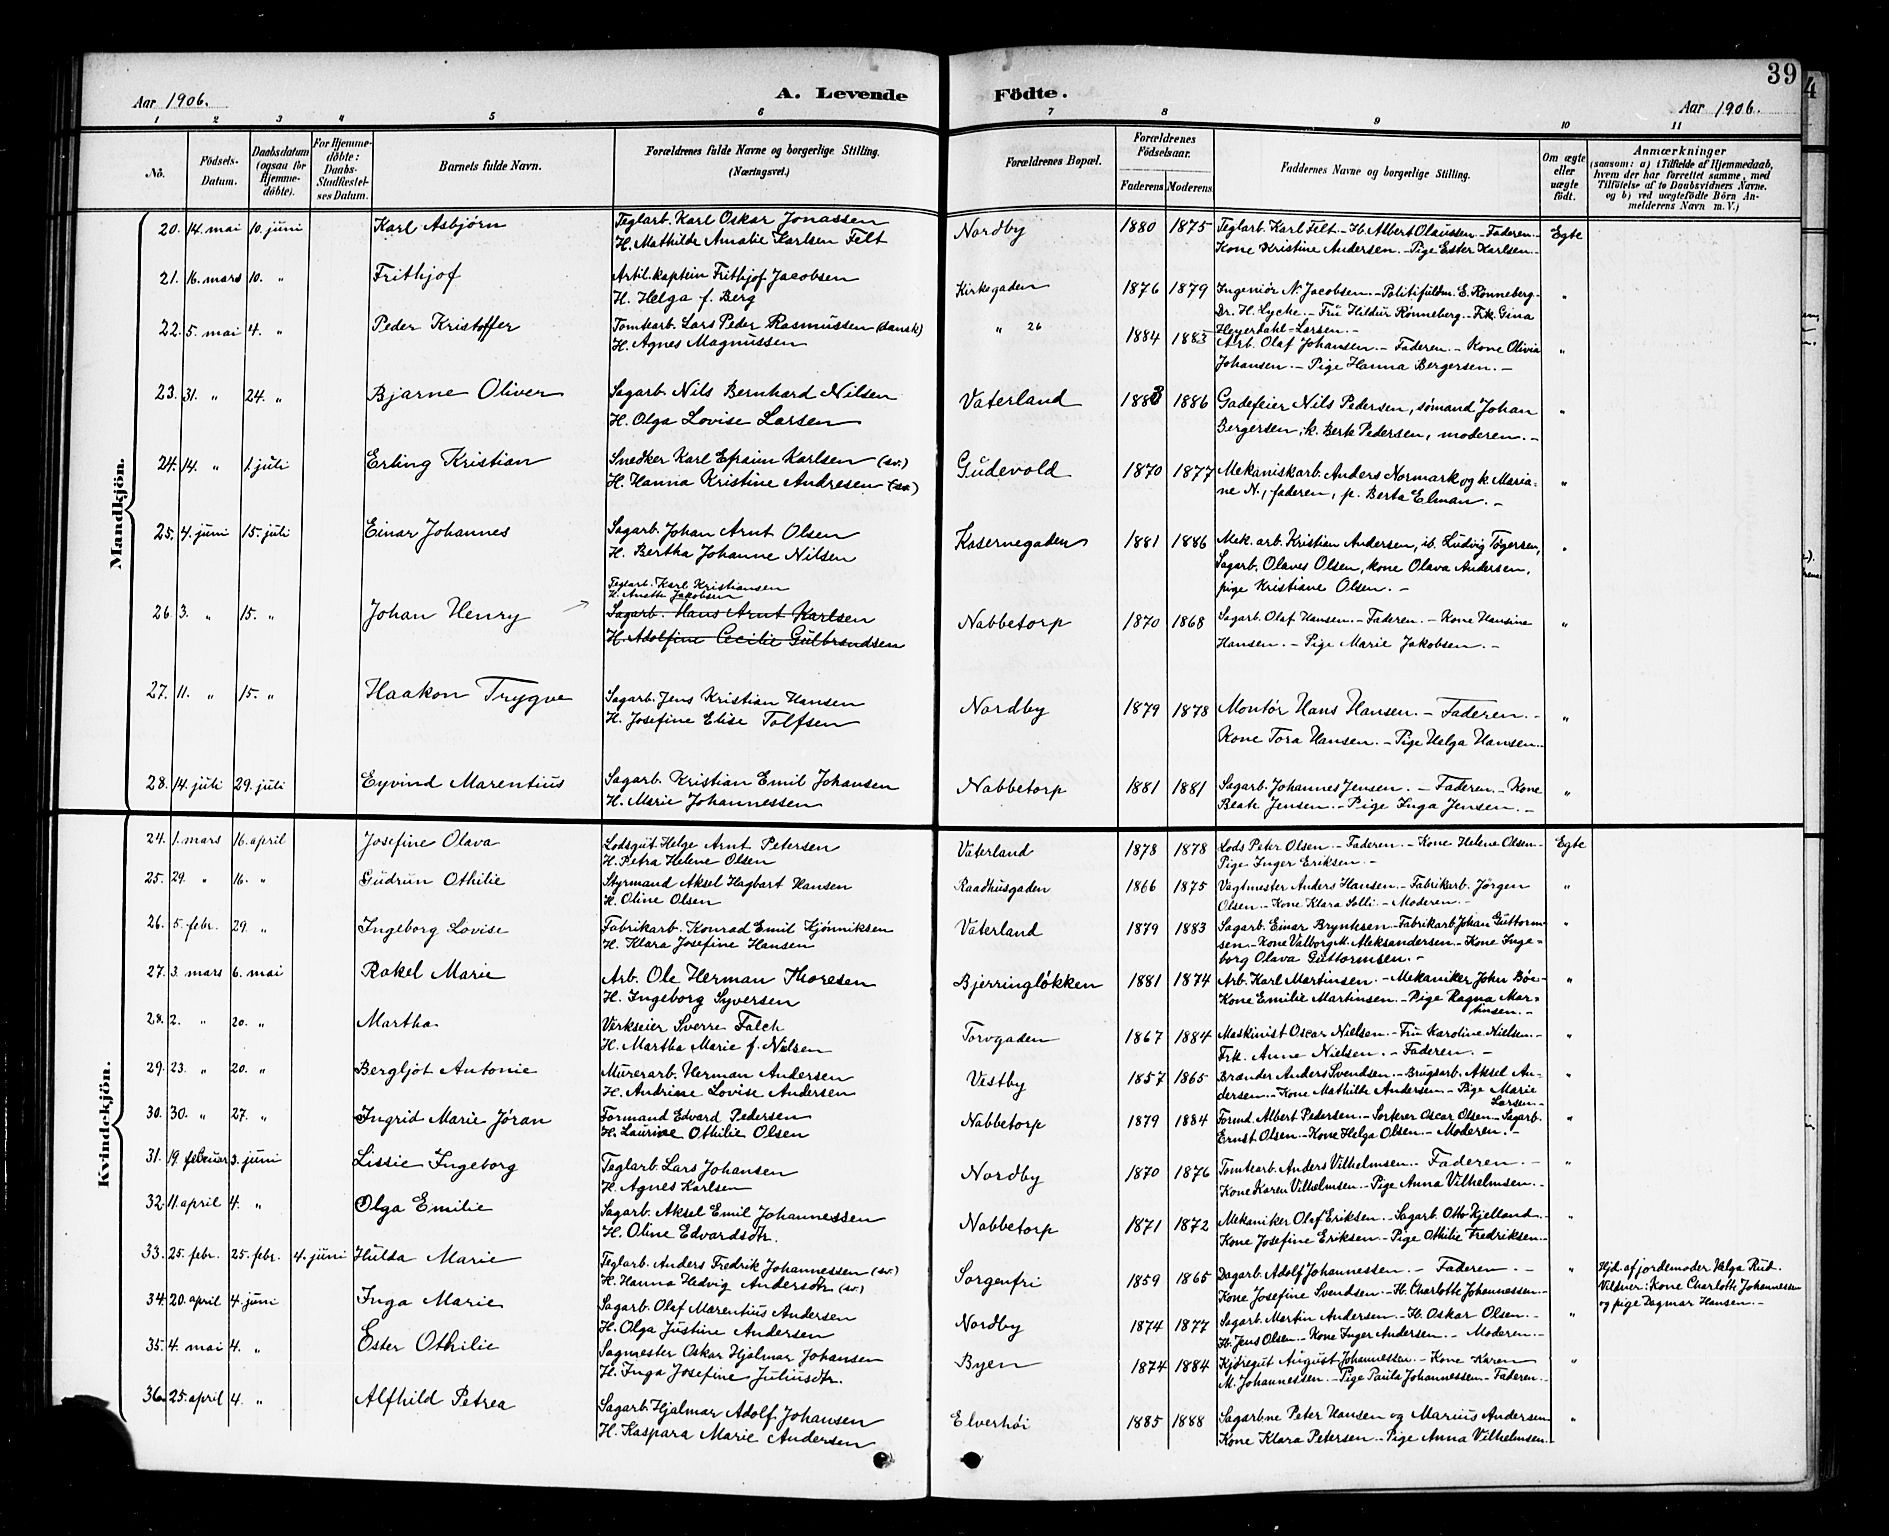 39
4
Aar 1906.
A. Levende Födte.
Aar 1906.
1 2 3 4 5 6 7 8 9 10 11
No. Födsels-Datum. Daabsdatum (ogsaa for Hjemme-döbte). For Hjemme-döbte: Daabs-Stadfæstel-ses Datum. Barnets fulde Navn. Forældrenes fulde Navne og borgerlige Stilling. (Næringsvei.) Forældrenes Bopæl. Forældrenes Födselsaar. Faderens Moderens Faddernes Navne og borgerlige Stilling. Om ægte eller uægte födt. Anmærkninger (saasom: a) i Tilfælde af Hjemmedaab, hvem der har forrettet samme, med Tilföielse af to Daabsvidners Navne, og b) ved uægtefödte Börn An-melderens Navn m. V.)
Mandkjön.
20. 14. mai 10. juni Karl Asbjörn Teglarb. Karl Oskar Jonassen Nordby 1880 1875 Teglarb. Karl Felt - H. Albert Olaussen - Faderen - Egte
H. Mathilde Amalie Karlsen Felt Kone Kristine Andersen - Pige Ester Karlsen -
21. 16. mars 10. " Frithjof Artil.kaptein Frithjof Jacobsen Kirkegaden 1876 1879 Ingeniør N. Jacobsen - Politifuldm. E. Rønneberg - "
H. Helga f. Berg Dr. H. Lyche - Fru Hildur Rønneberg - Frk. Gina
Heyerdahl-Larsen. -
22. 5. mai 4. " Peder Kristoffer Tomtearb. Lars Peder Rasmussen (dansk) " 26 1884 1883 Arb. Olaf Johansen. - Faderen. - Kone Olivia "
H. Agnes Magnussen Johansen. - Pige Hanna Bergersen. -
23. 31. " 24. " Bjarne Oliver Sagarb. Nils Bernhard Nilsen Vaterland 1883 1886 Gadefeier Nils Pedersen, sømand Johan "
H. Olga Lovise Larsen Bergersen, k. Berte Pedersen, moderen. -
24. 14. " 1. juli Erling Kristian Snedker Karl Efraim Karlsen (sv.) Gudevold 1870 1877 Mekaniskarb. Anders Normark og k. Maria- "
H. Hanna Kristine Andresen (sv.) ne N., faderen, p. Berta Elman. -
25. 4. juni 15. juli Einar Johannes Sagarb. Johan Arnt Olsen Kasernegaden 1881 1886 Mek. arb. Kristian Andersen, ib. Ludvig Tøgersen, "
H. Bertha Johanne Nilsen Sagarb. Olaves Olsen, kone Olava Andersen,
pige Kristiane Olsen. -
Teglarb. Karl Kristiansen
H. Anette Jakobsen
26. 3. " 15. " Johan Henry Sagarb. Hans Arnt Karlsen Nabbetorp 1870 1868 Sagarb. Olaf Hansen. - Faderen. - Kone Hansine "
H. Adolfine Cecilie Gulbrandsen Hansen. - Pige Marie Jakobsen. -
27. 11. " 15. " Haakon Trygve Sagarb. Jens Kristian Hansen Nordby 1879 1878 Montør Hans Hansen. - Faderen. - "
H. Josefine Elise Tolfsen Kone Tora Hansen. - Pige Helga Hansen. -
28. 14. juli 29. juli Eyvind Marentius Sagarb. Kristian Emil Johansen Nabbetorp 1881 1881 Sagarb. Johannes Jensen. - Faderen. - Kone "
H. Marie Johannessen Beate Jensen. - Pige Inga Jensen. -
Kvindekjön.
24. 1. mars 16. april Josefine Olava Lodsgut Helge Arnt Petersen Vaterland 1878 1878 Lods Peter Olsen - Faderen. - Kone Helene Olsen - Egte
H. Petra Helene Olsen Pige Inger Eriksen. -
25. 29. " 16. " Gudrun Othilie Styrmand Aksel Hagbart Hansen Raadhusgaden 1866 1875 Vagtmester Anders Hansen. - Fabrikarb. Jörgen "
H. Oline Olsen Olsen - Kone Klara Solli. - Moderen. -
26. 5. febr. 29. " Ingeborg Lovise Fabrikarb. Konrad Emil Kjönniksen Vaterland 1879 1883 Sagarb. Einar Bryntesen - Fabrikarb. Johan Guttorm- "
H. Klara Josefine Hansen sen - Kone Valborg M. Aleksandersen - Kone Inge-
borg Olava Guttormsen. -
27. 3. mars 6. mai Rakel Marie Arb. Ole Herman Thoresen Bjerringløkken 1881 1874 Arb. Karl Martinsen. - Mekaniker John Bøe - "
H. Ingeborg Syversen Kone Emilie Martinsen - Pige Ragna Mar-
tinsen. -
28. 2. " 20. " Martha Verkseier Sverre Falch Torvgaden 1867 1884 Maskinist Oscar Nielsen - Fru Karoline Nielsen. - "
H. Martha Marie f. Nielsen Frk. Anne Nielsen. - Faderen. -
29. 23. " 20. " Bergljot Antonie Murerarb. Herman Andersen Vestby 1857 1865 Brænder Anders Svendsen - Brugsarb. Aksel An- "
H. Andriane Lovise Andersen dersen - Kone Mathilde Andersen - Pige Marie
Larsen -
30. 30. " 27. " Ingrid Marie Jóran Formand Edvard Pedersen Nabbetorp 1879 1884 Formd. Albert Pedersen - Sorterer Oscar Olsen - Sagarb. "
H. Laurine Othilie Olsen Ernst Olsen - Kone Helga Olsen - Moderen. -
31. 19. februar 3. juni Lissie Ingeborg Teglarb. Lars Johansen Nordby 1870 1876 Tomtearb. Anders Vilhelmsen. - Faderen. - "
H. Agnes Karlsen Kone Karen Vilhelmsen - Pige Anna Vilhelmsen. -
32. 11. april 4. " Olga Emilie Sagarb. Aksel Emil Johannessen Nabbetorp 1871 1872 Mekaniker Olaf Eriksen. - Sagarb. Otto Kjelland. - "
H. Oline Edvardsdtr. Kone Josefine Eriksen - Pige Othilie Fredriksen. -
33. 25. febr. 25. febr. 4. juni Hulda Marie Teglarb. Anders Fredrik Johannessen (sv.) Sorgenfri 1859 1865 Dagarb. Adolf Johannessen - Faderen. - " Hjd. af jordemoder Helga Rud.
H. Hanna Hedvig Andersdtr (sv.) Kone Josefine Svendsen - H. Charlotte Johannessen - Vidner: Kone Charlotte Johannessen
og pige Dagmar Hansen. -
34. 20. april 4. juni Inga Marie Sagarb. Olaf Marentius Andersen Nordby 1874 1877 Sagarb. Martin Andersen - H. Oskar Olsen. - "
H. Olga Justine Andersen H. Jens Olsen - Kone Inger Andersen. - Moderen. -
35. 4. mai 4. " Ester Othilie Sagmester Oskar Hjalmar Johansen Byen 1874 1884 Kjøregut August Johannessen. - Kone Karen "
H. Inga Josefine Juliusdtr. M. Johannessen. - Pige Paula Johannessen - Faderen. -
36. 25. april 4. " Alfhild Petrea Sagarb. Hjalmar Adolf Johansen Elverhöi 1885 1888 Sagarbne Peter Hansen og Marius Andersen "
H. Kaspara Marie Andersen Kone Klara Petersen - Pige Anna Vilhelmsen. -